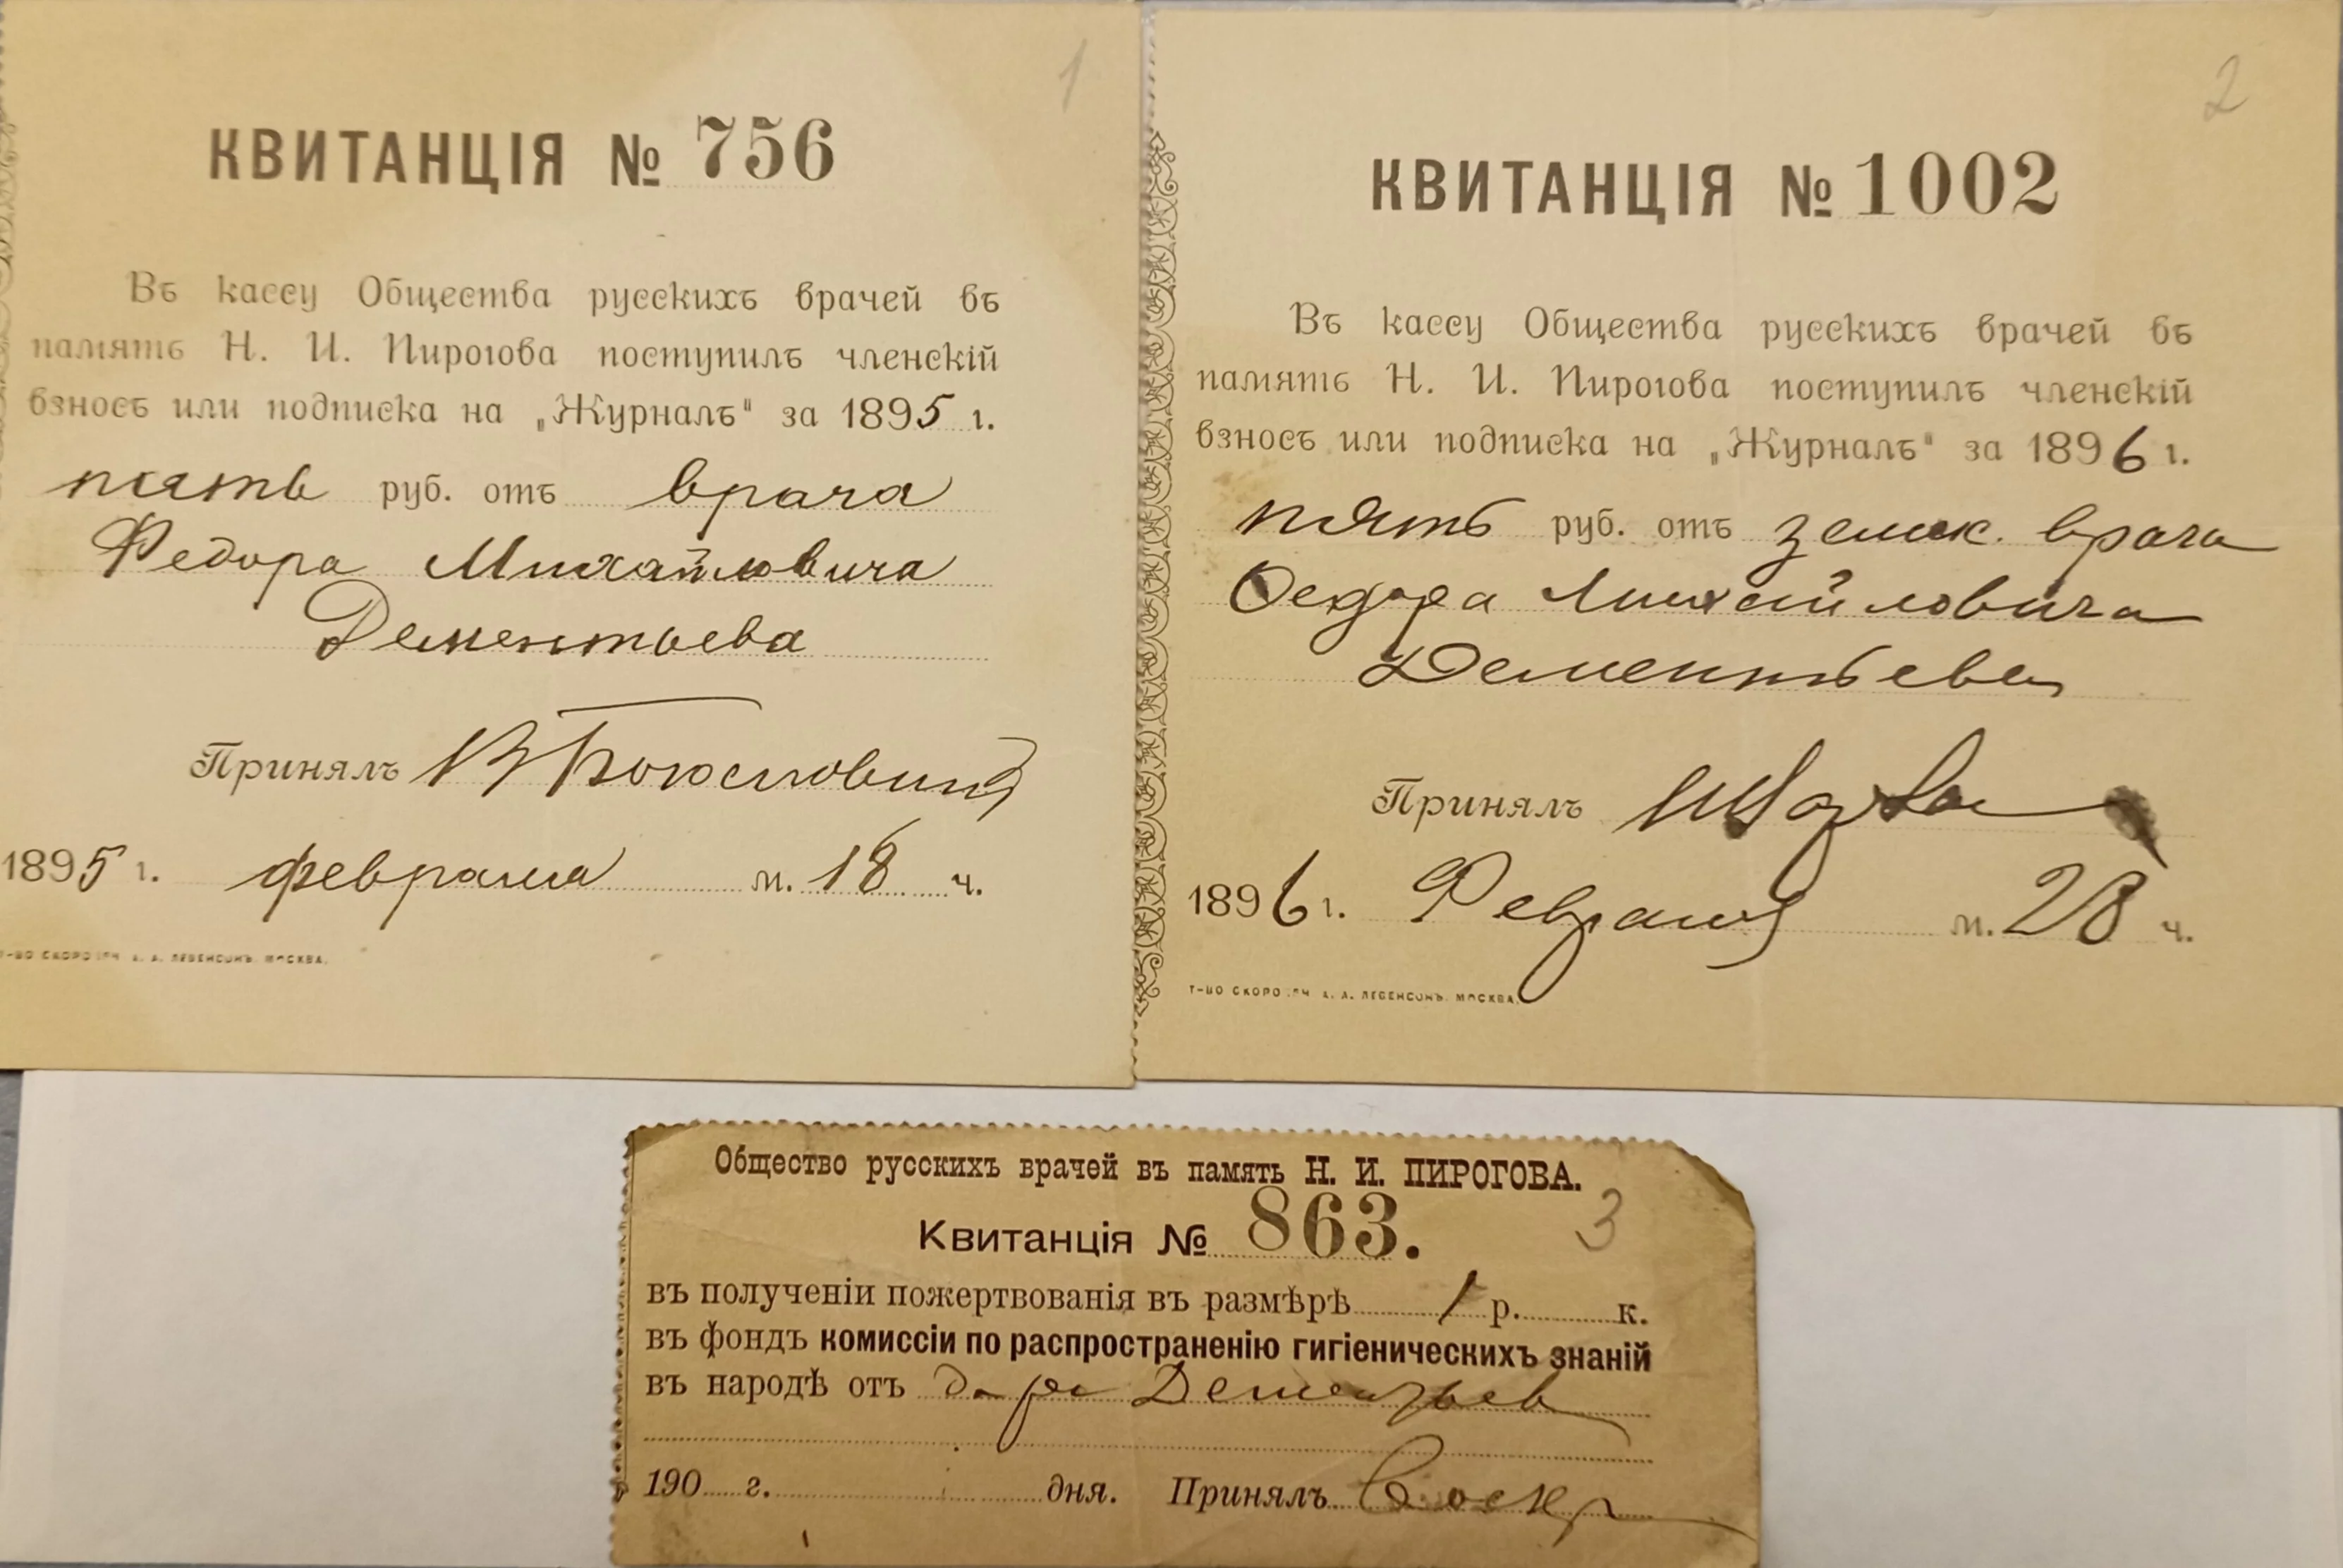 1
КВИТАНЦІЯ № 756
Въ кассу Общества русскихъ врачей въ
память Н. И. Пирогова поступилъ членскій
взносъ или подписка на „Журналъ" за 1895 г.
пять руб. отъ врача
Федора Михайловича
Дементьева
Принялъ В Богословскій
1895 г. февраля м. 18 ч.
Т-ВО СКОРОПЕЧ. А. А. ЛЕВЕНСОНЪ. МОСКВА.
2
КВИТАНЦІЯ № 1002
Въ кассу Общества русскихъ врачей въ
память Н. И. Пирогова поступилъ членскій
взносъ или подписка на „Журналъ" за 1896 г.
пять руб. отъ земск. врача
Ѳедора Михайловича
Дементьева
Принялъ
1896 г. Февраля м. 28 ч.
Т-ВО СКОРОПЕЧ. А. А. ЛЕВЕНСОНЪ. МОСКВА.
Общество русскихъ врачей въ память Н. И. ПИРОГОВА.
Квитанція № 863.
3
въ полученіи пожертвованія въ размѣрѣ 1 р. к.
въ фондъ комиссіи по распространенію гигіеническихъ знаній
въ народѣ отъ д-ра Дементьев
190 г. дня. Принялъ